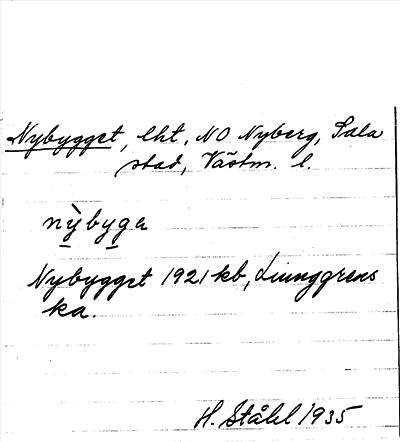 Nybygget, lht, NO Nyberg, Sala
stad, Västm. l.
nỳbyga
Nybygget 1921 kb, Ljunggrens
ka.
H. Ståhl 1935